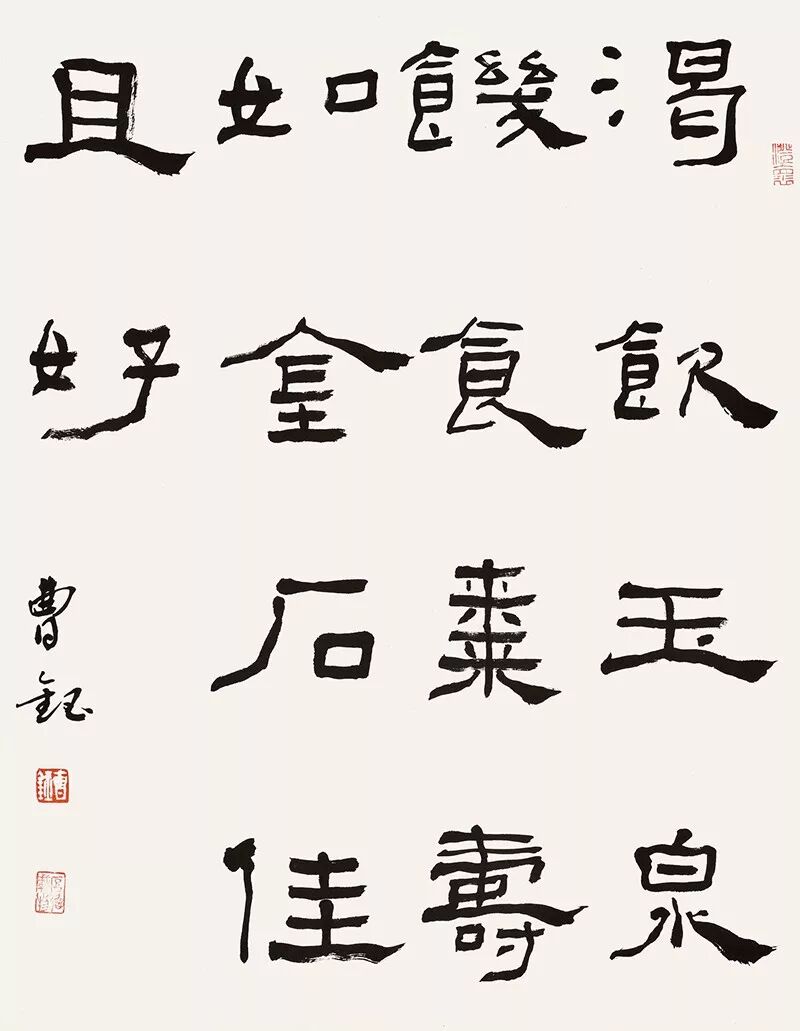 渴飲玉泉
饑食棗壽
如金石佳
且好
曹鈺